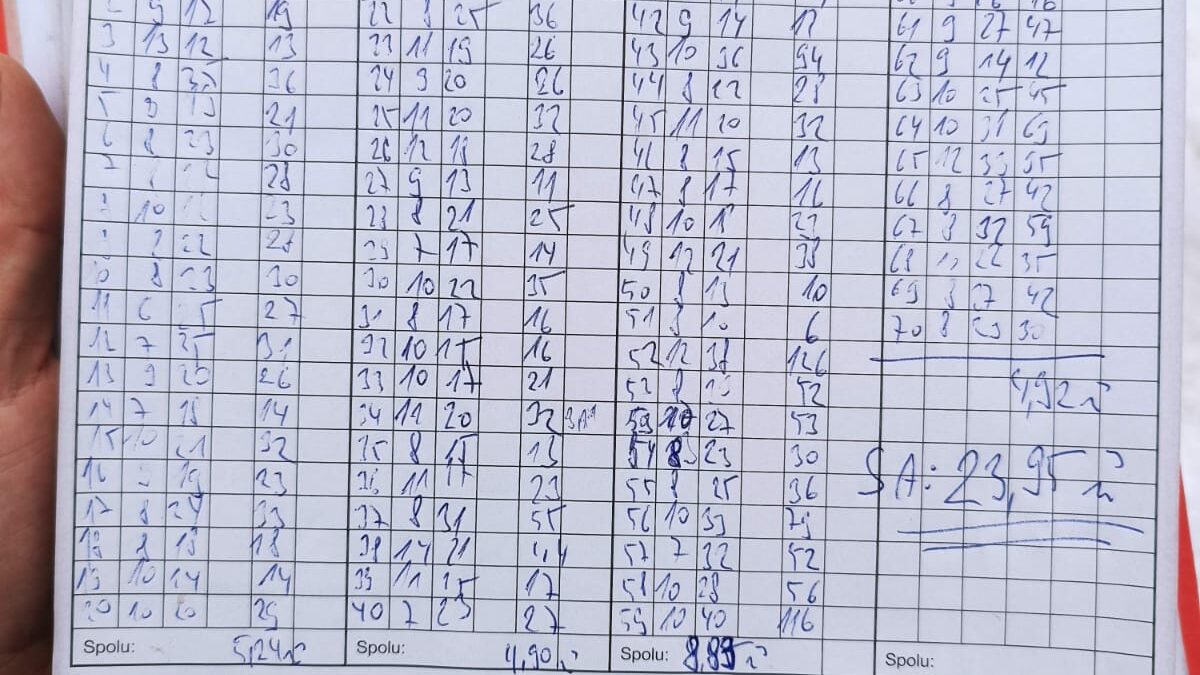 2 9 12 19 22 8 25 36 42 9 14 12 61 9 27 47
3 13 12 13 23 11 19 26 43 10 36 94 62 9 14 12
4 8 36 24 9 20 26 44 8 22 28 63 10 25 45
5 9 13 21 25 11 20 32 45 11 20 32 64 10 31 69
6 8 23 30 26 12 18 28 46 8 15 13 65 12 33 95
7 28 27 9 13 11 47 8 17 16 66 8 27 42
10 23 28 8 21 25 48 10 18 23 67 8 32 59
22 28 29 7 17 14 49 12 21 38 68 22 35
10 8 23 30 30 10 22 35 50 8 13 10 69 8 27 42
11 6 25 27 31 8 17 16 51 8 10 6 70 8 23 30
12 7 25 31 32 10 15 16 52 12 38 126
13 9 20 26 33 10 17 21 52 8 52 4,92
14 7 18 14 34 11 20 32 53 10 27 53
15 10 21 32 35 8 15 13 54 8 23 30 SA: 23,95
16 9 19 23 36 11 17 23 55 8 25 36
17 8 24 33 37 8 31 55 56 10 33 79
18 8 18 18 38 14 21 44 57 7 32 52
19 10 14 14 39 11 15 17 58 10 28 56
20 10 20 29 40 7 23 27 59 10 40 116
Spolu: 5,24 Spolu: 4,90 Spolu: 8,89 Spolu: